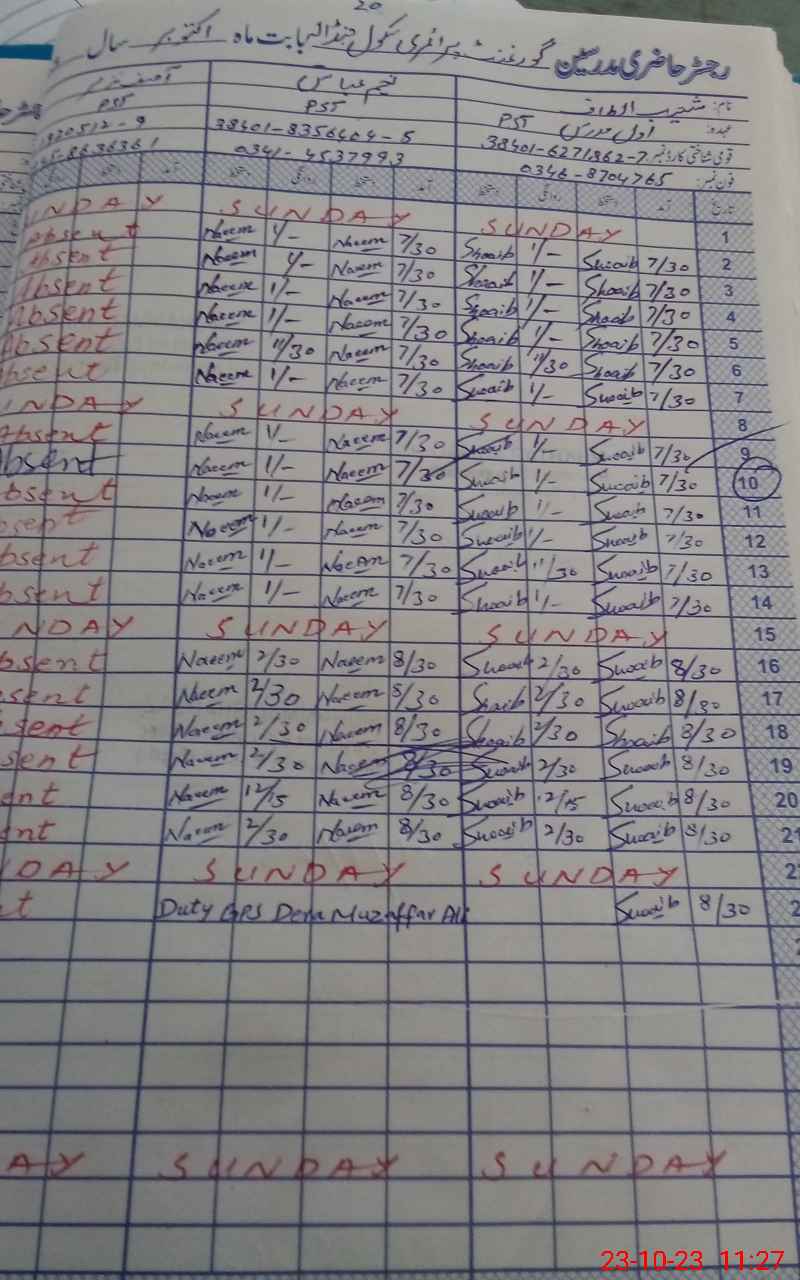 20
رجسٹر حاضری مدرسین گورنمنٹ پرائمری سکول بابت ماہ اکتوبر سال
نام: شعیب الطاف نجم عباس آصف
عہدہ: اول مدرس PST PST PST
قومی شناختی کارڈ نمبر 38401-6271362-7 38401-8356404-5 920512-9
فون نمبر: 0346-8704765 0341-4537993
تاریخ آمد دستخط روانگی دستخط آمد دستخط روانگی دستخط
NDAY SUNDAY SUNDAY 1
absent Naeem 1/- Naeem 7/30 Shoaib 1/- Shoaib 7/30 2
absent Naeem 1/- Naeem 7/30 Shoaib 1/- Shoaib 7/30 3
absent Naeem 1/- Naeem 7/30 Shoaib 1/- Shoaib 7/30 4
absent Naeem 1/- Naeem 7/30 Shoaib 1/- Shoaib 7/30 5
absent Naeem 11/30 Naeem 7/30 Shoaib 11/30 Shoaib 7/30 6
bsent Naeem 1/- Naeem 7/30 Shoaib 1/- Shoaib 7/30 7
NDAY SUNDAY SUNDAY 8
Absent Naeem 1/- Naeem 7/30 Shoaib 1/- Shoaib 7/30 9
bsent Naeem 1/- Naeem 7/30 Shoaib 1/- Shoaib 7/30 10
bsent Naeem 1/- Naeem 7/30 Shoaib 1/- Shoaib 7/30 11
bsent Naeem 1/- Naeem 7/30 Shoaib 1/- Shoaib 7/30 12
bsent Naeem 1/- Naeem 7/30 Shoaib 11/30 Shoaib 7/30 13
bsent Naeem 1/- Naeem 7/30 Shoaib 1/- Shoaib 7/30 14
NDAY SUNDAY SUNDAY 15
bsent Naeem 2/30 Naeem 8/30 Shoaib 2/30 Shoaib 8/30 16
sent Naeem 2/30 Naeem 8/30 Shoaib 2/30 Shoaib 8/30 17
sent Naeem 2/30 Naeem 8/30 Shoaib 2/30 Shoaib 8/30 18
sent Naeem 2/30 Naeem 8/30 Shoaib 2/30 Shoaib 8/30 19
ent Naeem 12/15 Naeem 8/30 Shoaib 12/15 Shoaib 8/30 20
ent Naeem 2/30 Naeem 8/30 Shoaib 2/30 Shoaib 8/30 21
DAY SUNDAY SUNDAY 2
t Duty GPS Dera Muzaffar Ali Shoaib 8/30 2
AY SUNDAY SUNDAY
23-10-23 11:27